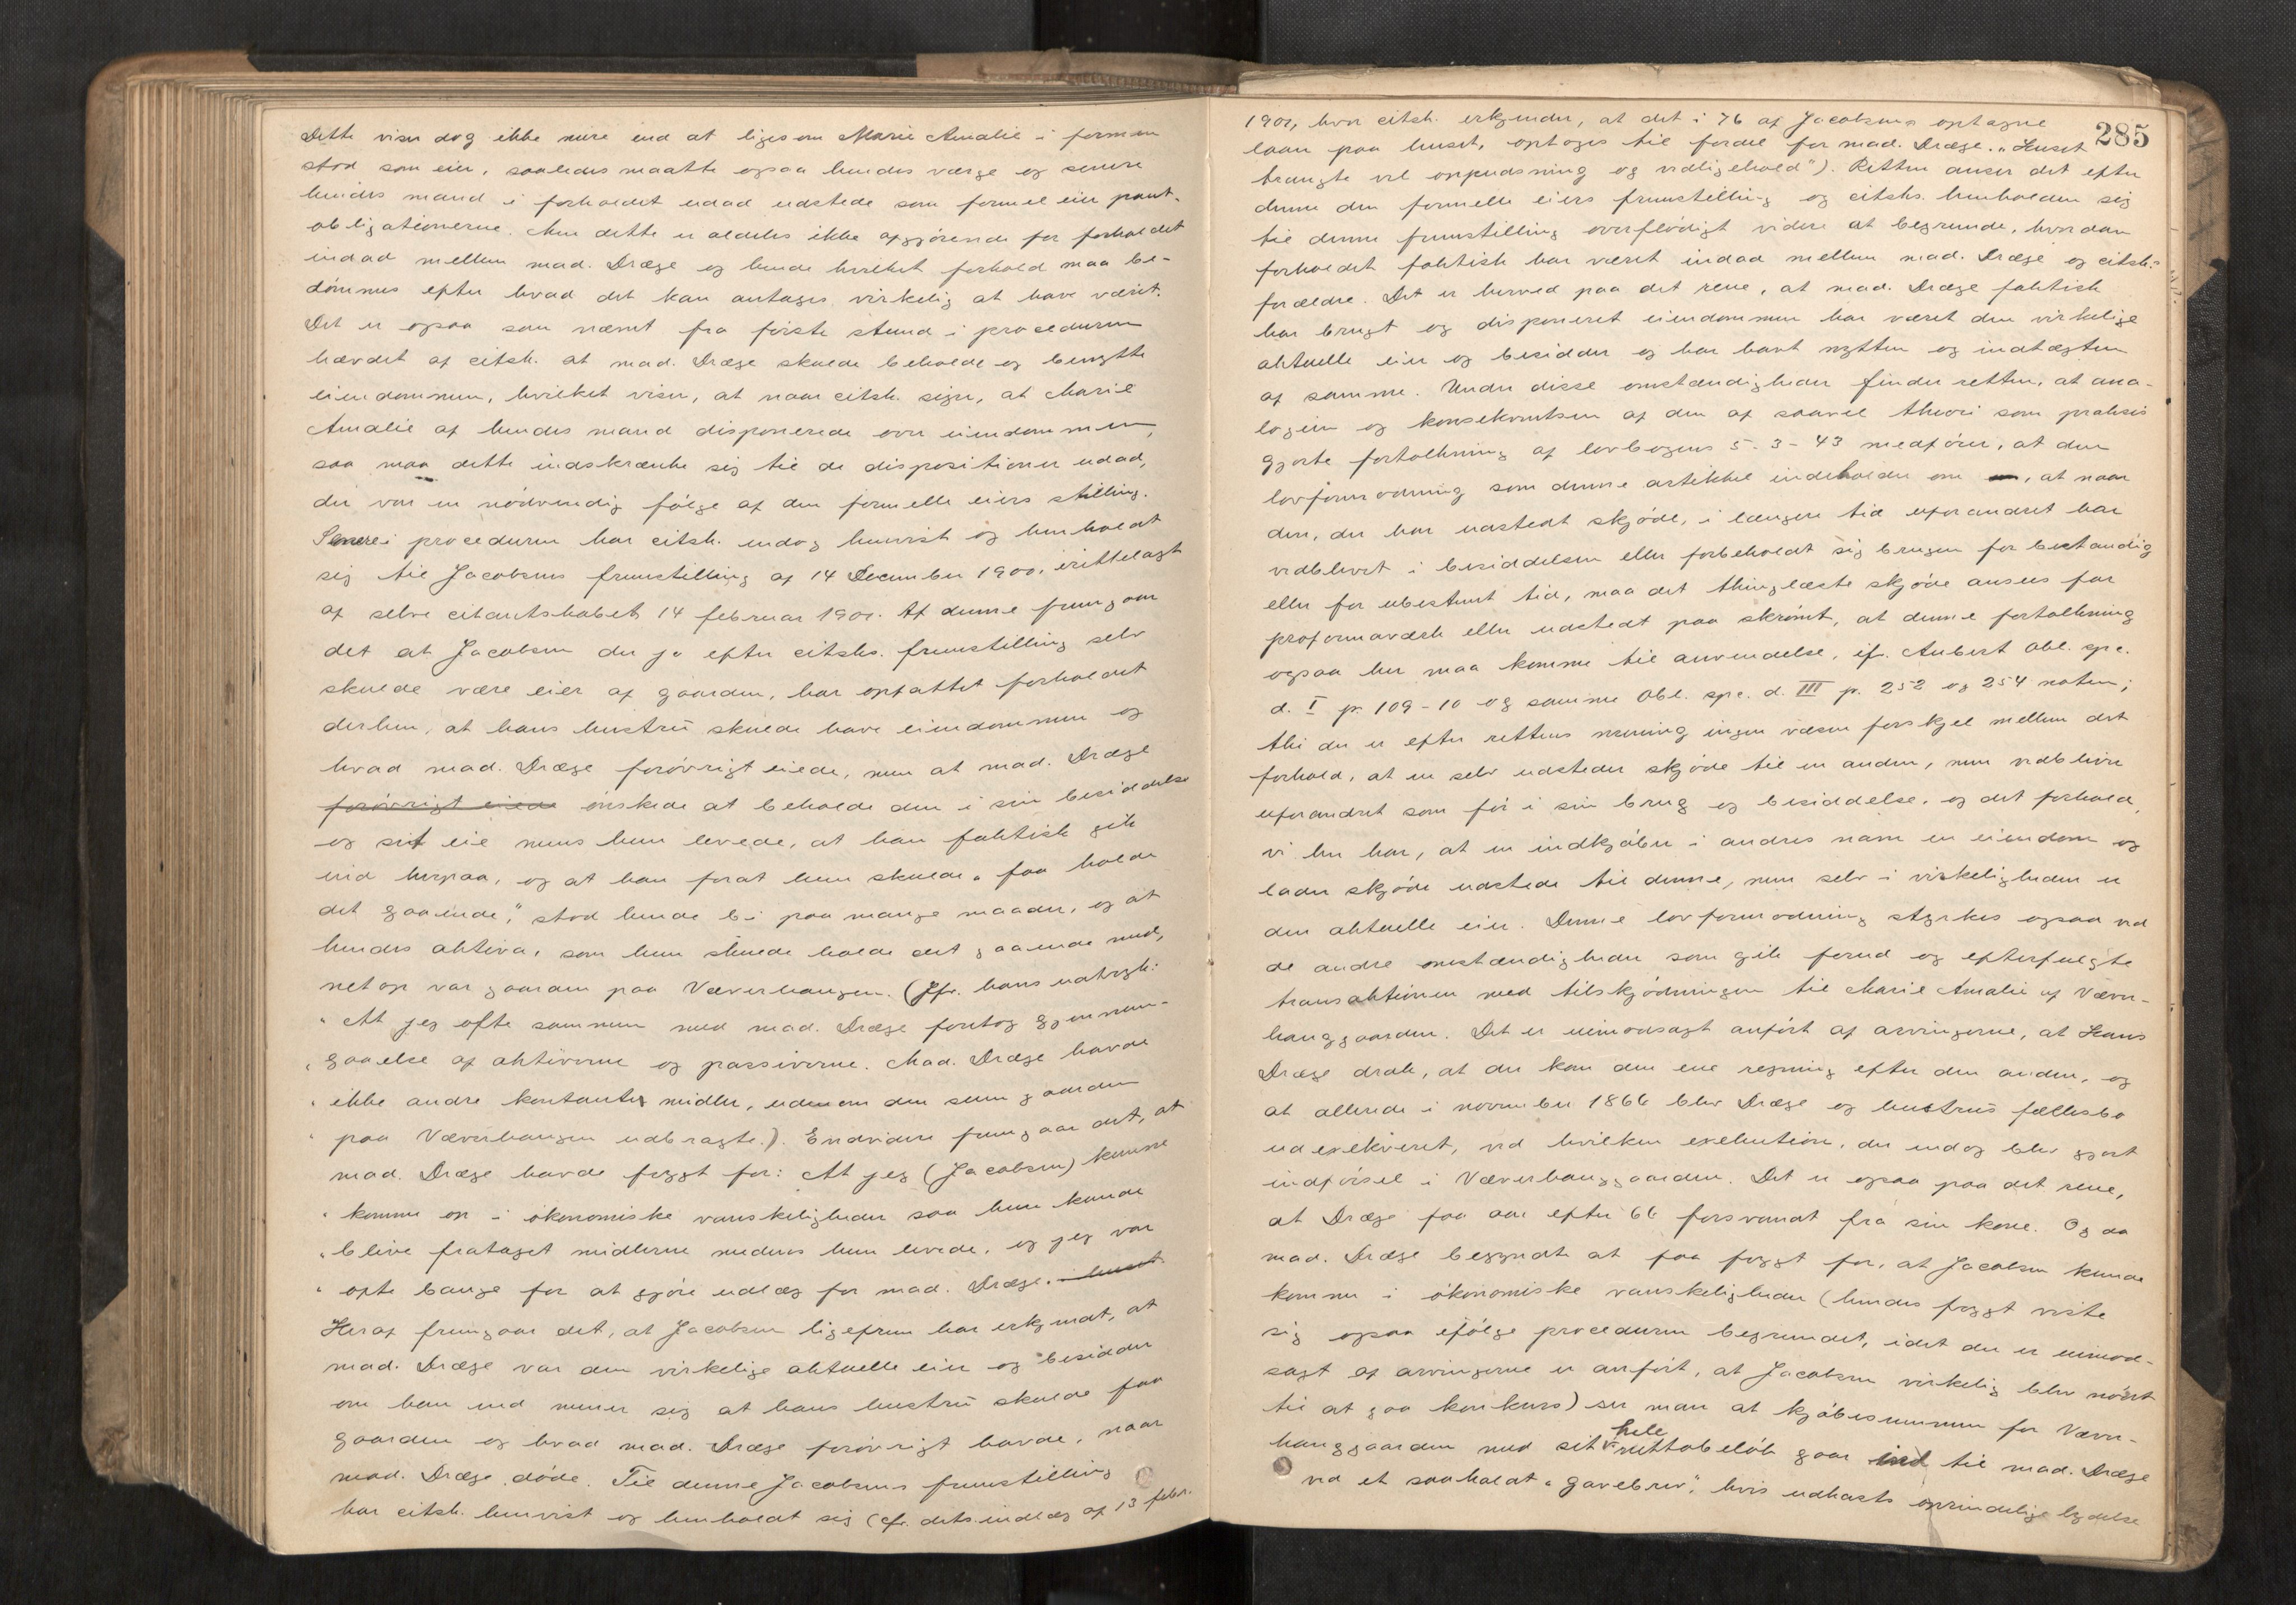 Dette viser dog ikke mere end at ligesom Marie Amalie i formen
stod som eier, saaledes maatte ogsaa hendes værge og senere
hendes mand i forholdet udad udstede som formel eier pant-
obligationerne. Men dette er aldeles ikke afgjörende for forholdet
indad mellem mad. Dræge og hende hvilket forhold maa be-
dömmes efter hvad det kan antages virkelig at have været.
Det er ogsaa som nævnt fra förste stund i proceduren
hævdet af citsk. at mad. Dræge skulde beholde og benytte
eiendommen, hvilket viser, at naar citsk. siger, at Marie
Amalie af hendes mand disponerede over eiendommen,
saa maa dette indskrænke sig til de dispositioner udad,
der var en nödvendig fölge af den formelle eiers stilling.
Senere i proceduren har citsk. endog henvist og henholdt
sig til Jacobsens fremstilling af 14 December 1900, irettelagt
af selve citantskabet 14 februar 1901. Af denne fremgaar
det at Jacobsen der jo efter citsks. fremstilling selv
skulde være eier af gaarden, har opfattet forholdet
derhen, at hans hustru skulde have eiendommen og
hvad mad. Dræge forövrigt eiede, men at mad. Dræge
forövrigt eiede önskede at beholde den i sin besiddelse
og sit eie mens hun levede, at han faktisk gik
ind herpaa, og at han forat hun skulde „faa holde
det gaaende", stod hende bi paa mange maader, og at
hendes aktiva, som hun skulde holde det gaaende med,
netop var gaarden paa Væverhaugen. (Jfr. hans udtryk:
„At jeg ofte sammen med mad. Dræge foretog gjennem-
„gaaelse af aktiverne og passiverne. Mad. Dræge havde
„ikke andre kontanter midler, udenom den sum gaarden
„paa Væverhaugen udbragte.). Endvidere fremgaar det, at
mad. Dræge havde frygt for: At jeg (Jacobsen) kunne
„komme op i ökonomiske vanskeligheder saa hun kunde
„blive frataget midlerne medens hun levede, og jeg var
„ofte bange for at gjöre udlæg for mad. Dræge. huset
Heraf fremgaar det, at Jacobsen ligefrem har erkjendt, at
mad. Dræge var den virkelige aktuelle eier og besidder
om han end mener sig at hans hustru skulde faa
gaarden og hvad mad. Dræge forövrigt havde, naar
mad. Dræge döde. Til denne Jacobsens fremstilling
har citsk. henvist og henholdt sig (cfr. dets indlæg af 13 febr.
285
1901, hvor citsk. erkjender, at det i 76 af Jacobsens optagne
laan paa huset, optoges til fordel for mad. Dræge. „Huset
trængte vel oppudsning og vedligehold"). Retten anser det efter
denne den formelle eiers fremstilling og citsks. henholden sig
til denne fremstilling overflödigt videre at begrunde, hvordan
forholdet faktisk har været indad mellem mad. Dræge og citsk:s
forældre. Det er herved paa det rene, at mad. Dræge faktisk
har brugt og disponeret eiendommen har været den virkelige
aktuelle eier og besidder og har havt nytten og indtægten
af samme. Under disse omstændigheder finder retten, at ana-
logien og konsekventsen af den af saavel theori som praksis
gjorte fortolkning af lovbogens 5-3-43 medförer, at den
lovformodning som denne artikkel indeholder om, at naar
den, der har udstedt skjöde, i længere tid uforandret har
vedblevet i besiddelsen eller forbeholdt sig brugen for bestandig
eller for ubestemt tid, maa det thinglæste skjöde ansees for
proformaværk eller udstedt paa skrömt, at denne fortolkning
ogsaa her maa komme til anvendelse, cfr. Aubert obl. spe.
d. I p. 109-10 og samme Obl. spe. d. III p. 252 og 254 noten;
thi der er efter rettens mening ingen væsen forskjel mellem det
forhold, at en selv udsteder skjöde til en anden, men vedbliver
uforandret som för i sin brug og besiddelse, og det forhold,
vi her har, at en indkjöber i andres navn en eiendom og
lader skjöde udstede til denne, men selv i virkeligheden er
den aktuelle eier. Denne lovformodning styrkes ogsaa ved
de andre omstændigheder som gik forud og efterfulgte
transaktionen med tilskjödningen til Marie Amalie af Væver-
hauggaarden. Det er uimodsagt anfört af arvingerne, at Hans
Dræge drak, at der kom den ene regning efter den anden, og
at allerede i november 1866 blev Dræge og hustrus fællesbo
udexekveret, ved hvilken exekution, der endog blev gjort
indförsel i Væverhauggaarden. Det er ogsaa paa det rene,
at Dræge faa aar efter 66 forsvandt fra sin kone. Og da
mad. Dræge begyndte at faa frygt for, at Jacobsen kunde
komme i ökonomiske vanskeligheder (hendes frygt viste
sig ogsaa ifölge proceduren begrundet, idet der er uimod-
sagt af arvingerne er anfört, at Jacobsen virkelig blev nödt
til at gaa konkurs) ser man at kjöbesummen for Væver-
hauggaarden med sit hele nettobelöb gaar ind til mad. Dræge
ved et saakaldt „gavebrev", hvis udkasts oprindelige lydelse